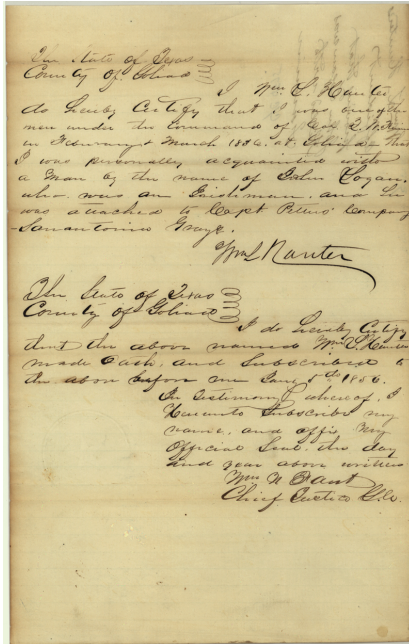 The State of Texas
County of Goliad
I Wm L. Hunter
do hereby Certify that I was one of the
men under the Command of Col
in February & March 1836. at Goliad & that
I was personally acquainted with
a Man by the name of John Logan.
who was an Irishman, and he
was attached to Capt Company
Sanantonio Grays.
Wm L Hunter
The State of Texas
County of Goliad
I do hereby Certify
that the above named Wm L Hunter
made Oath, and Subscribed to
the above before me Jany 5th 1856.
In testimony whereof, I
Hereunto Subscribe my
name, and affix My
Official Seal the day
and year above written
Wm
Chief Justice G.C.